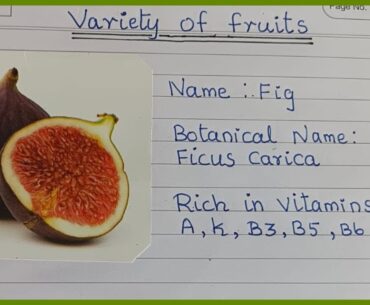 Page No.
Variety of fruits
Name : Fig
Botanical Name:
Ficus Carica
Rich in Vitamins
A, K, B3, B5, B6